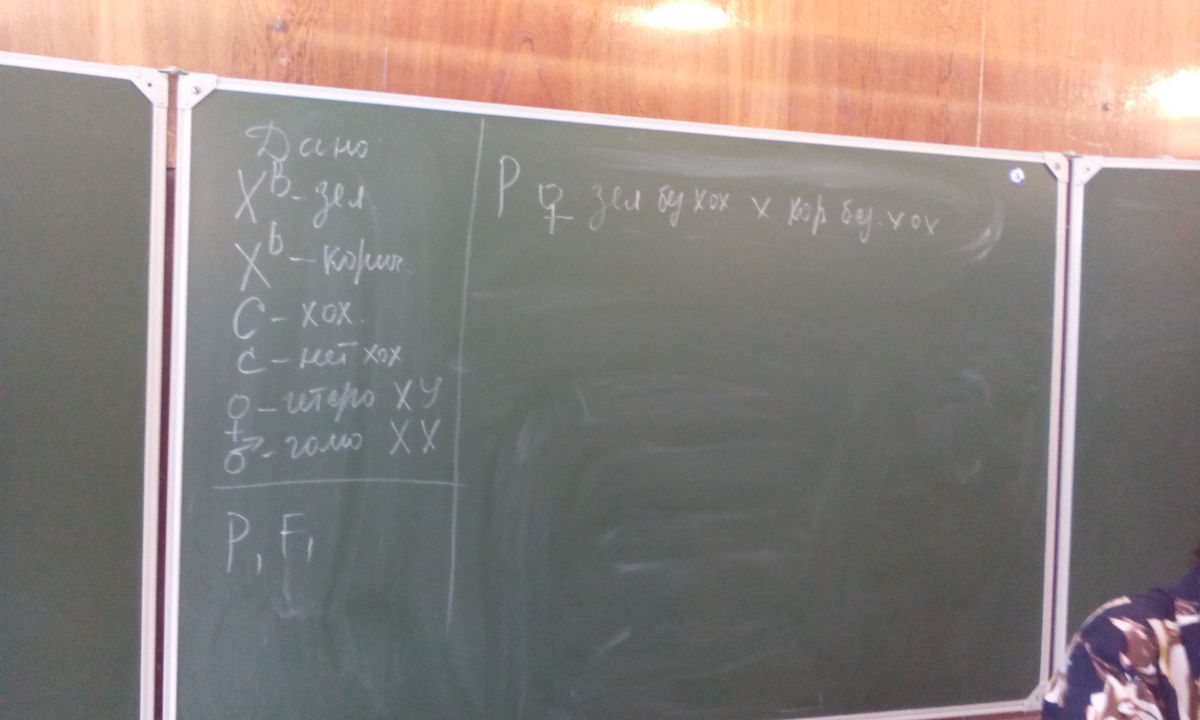 Дано:
X^B - зел.
X^b - корич.
C - хох.
c - нет хох
♀ - гетеро XY
♂ - гомо XX
P, F₁
P ♀ зел без хох x кор без. хох